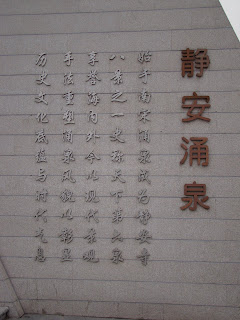 静安涌泉
始于南宋涌泉成为静安寺
八景之一史称天下第六泉
享誉海内外今以现代景观
手法重塑涌泉风貌以彰显
历史文化底蕴与时代气息